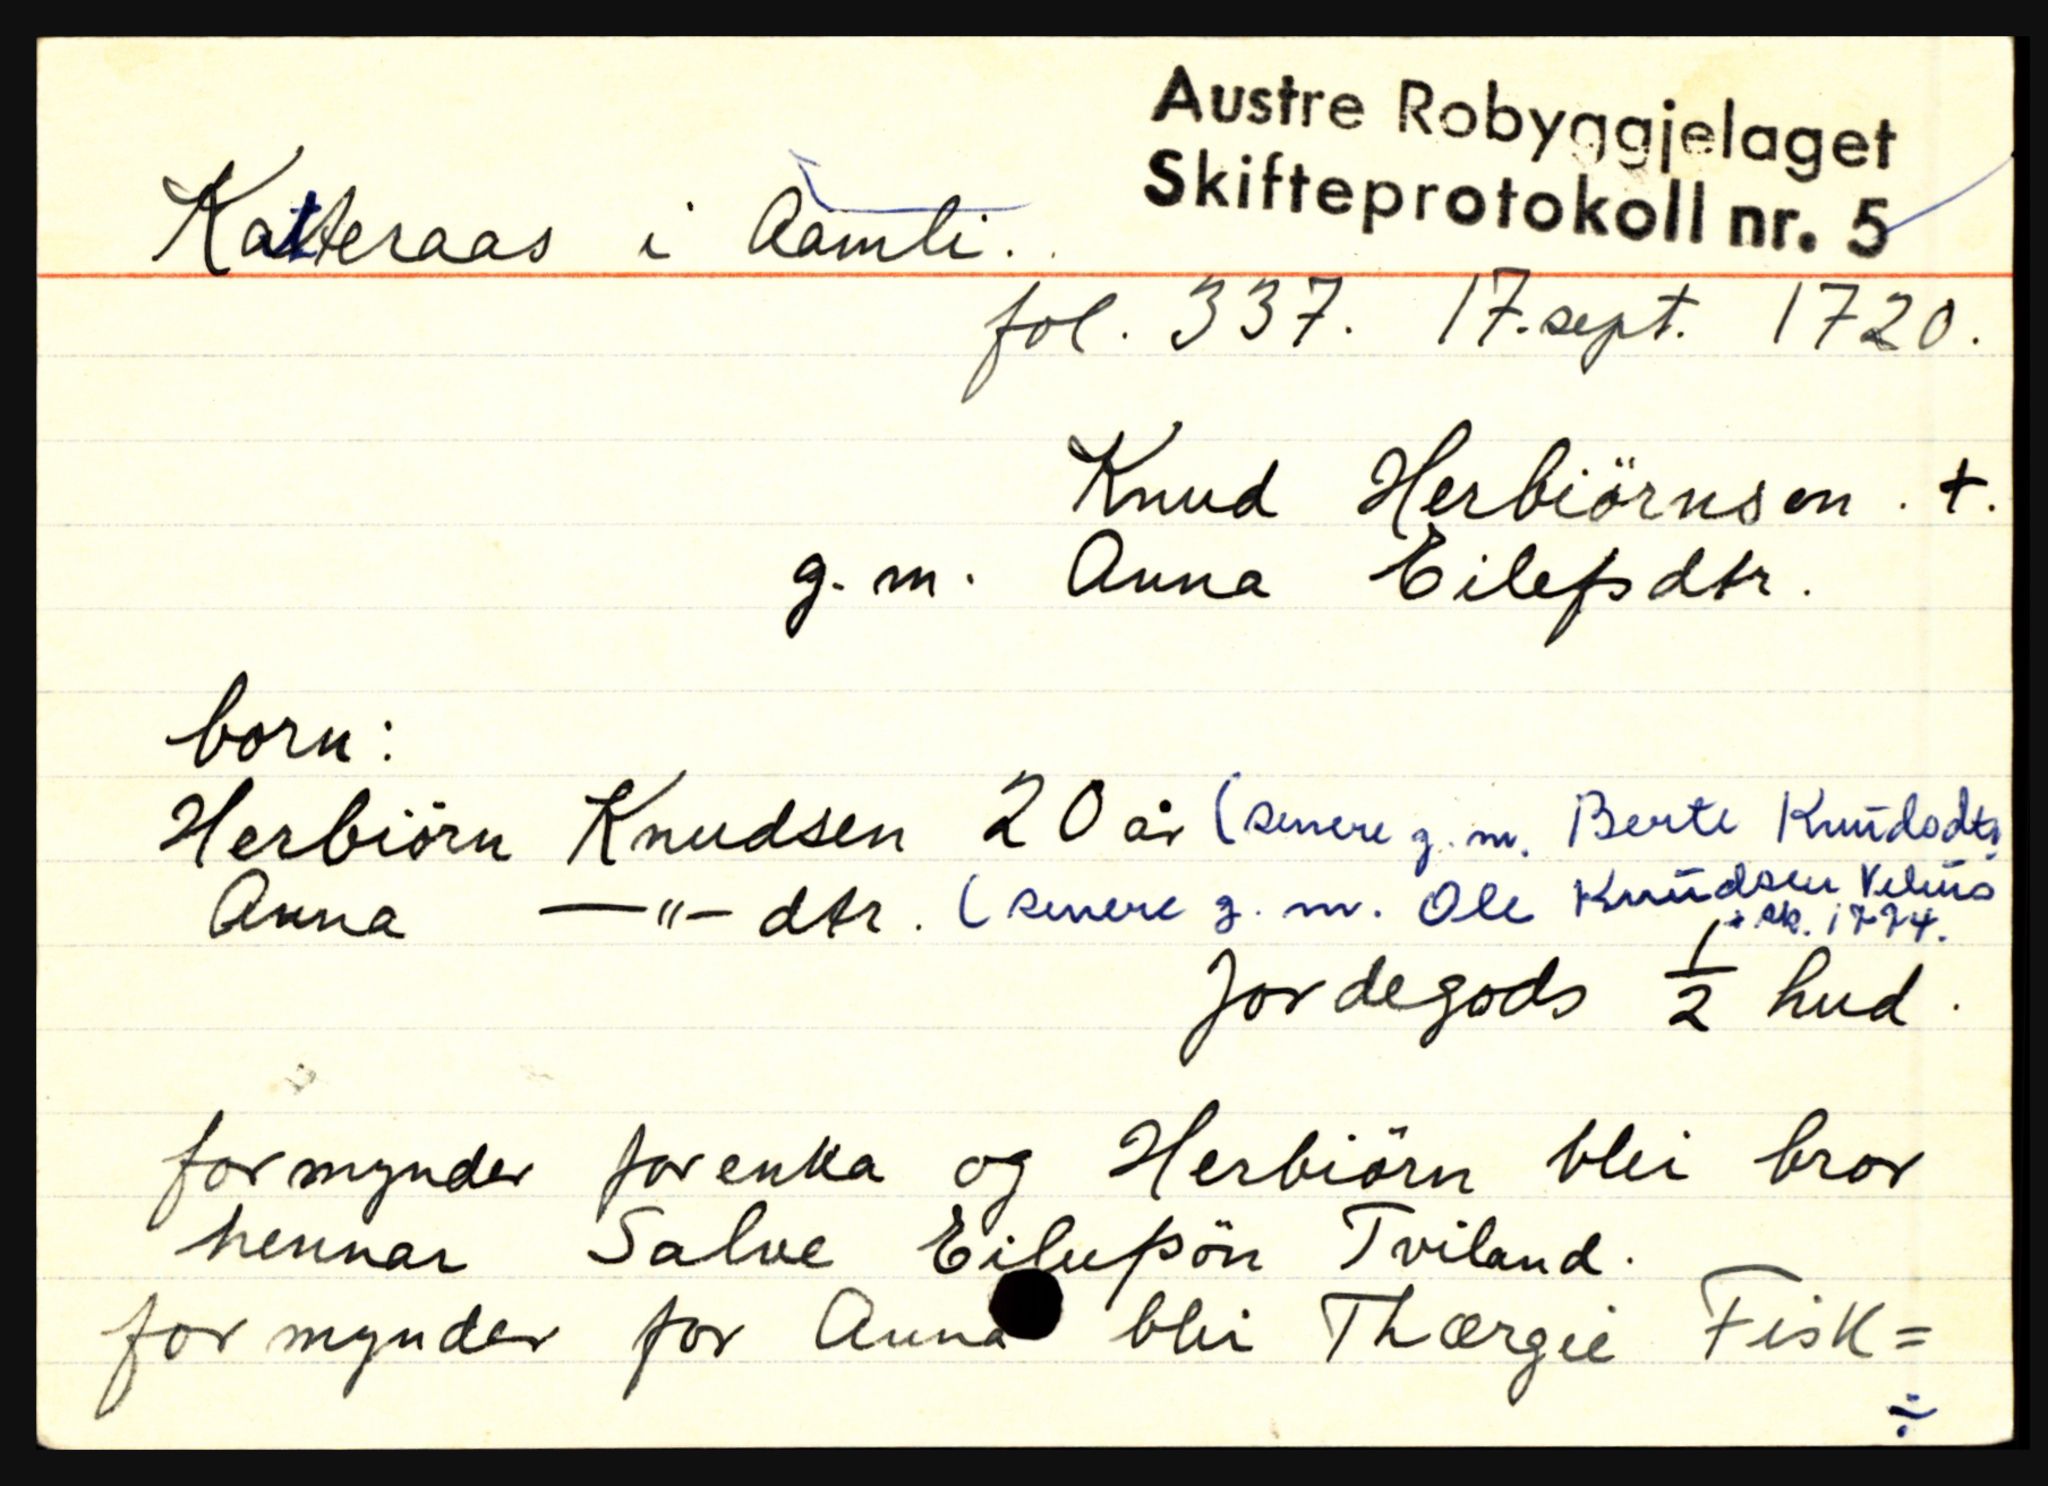 Austre Robyggjelaget
Skifteprotokoll nr. 5
Katteraas i Aamli.
fol. 337. 17. sept. 1720.
Knud Herbiörnsen. +.
g. m. Anna Eilefsdtr.
born:
Herbiörn Knudsen 20 år (senere g. m. Berte Knudsdtr
Anna —"— dtr. (senere g. m. Ole Knudsen
sk. 1774.
Jordegods 1/2 hud.
formynder for enka og Herbiörn blei bror
hennar Salve Eilufsön Tviland.
formynder for Anna blei Thærgie Fisk=
÷